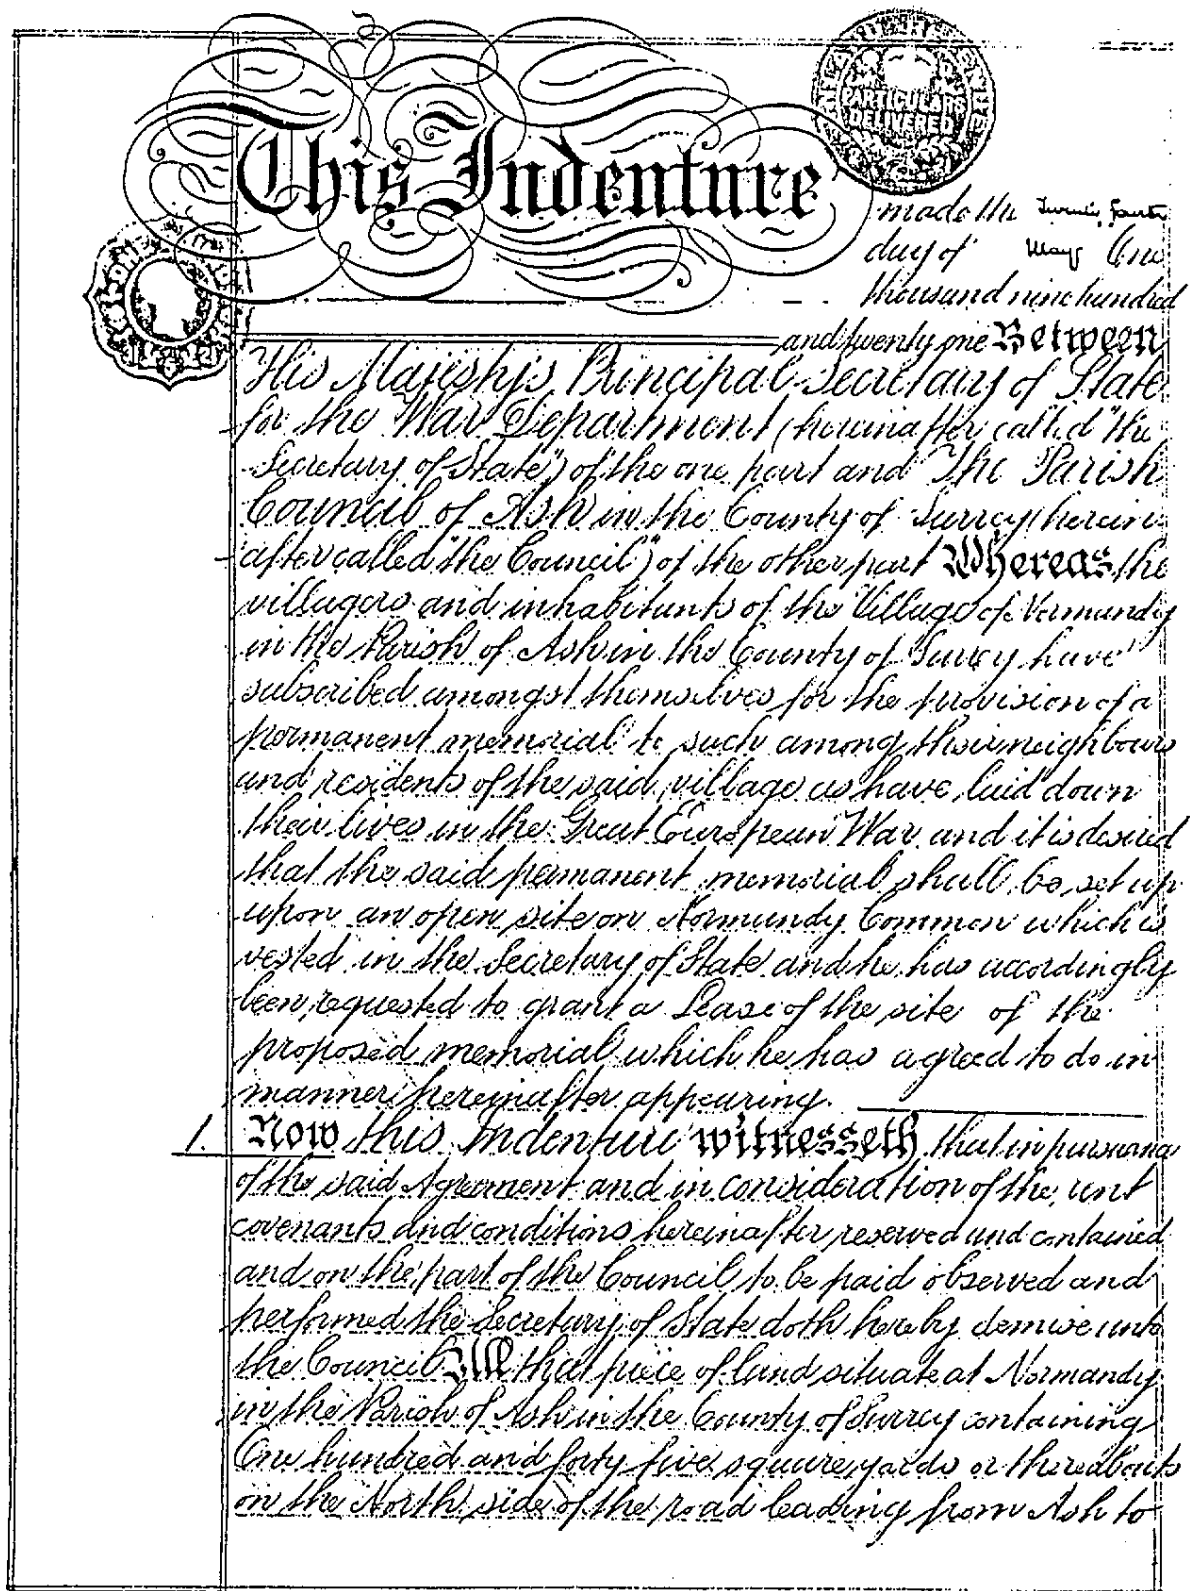 PARTICULARS
DELIVERED
This Indenture
made the Twenty fourth
day of May One
thousand nine hundred
and twenty one Between
His Majesty's Principal Secretary of State
for the War Department (hereinafter called "the
Secretary of State") of the one part and The Parish
Council of Ash in the County of Surrey (herein
after called "the Council") of the other part Whereas the
villagers and inhabitants of the Village of Normandy
in the Parish of Ash in the County of Surrey have
subscribed amongst themselves for the provision of a
permanent memorial to such among their neighbours
and residents of the said village as have laid down
their lives in the Great European War and it is desired
that the said permanent memorial shall be set up
upon an open site on Normandy Common which is
vested in the Secretary of State and he has accordingly
been requested to grant a Lease of the site of the
proposed memorial which he has agreed to do in
manner hereinafter appearing.
1. Now this Indenture witnesseth that in pursuance
of the said Agreement and in consideration of the rent
covenants and conditions hereinafter reserved and contained
and on the part of the Council to be paid observed and
performed the Secretary of State doth hereby demise unto
the Council All that piece of land situate at Normandy
in the Parish of Ash in the County of Surrey containing
One hundred and forty five square yards or thereabouts
on the North side of the road leading from Ash to